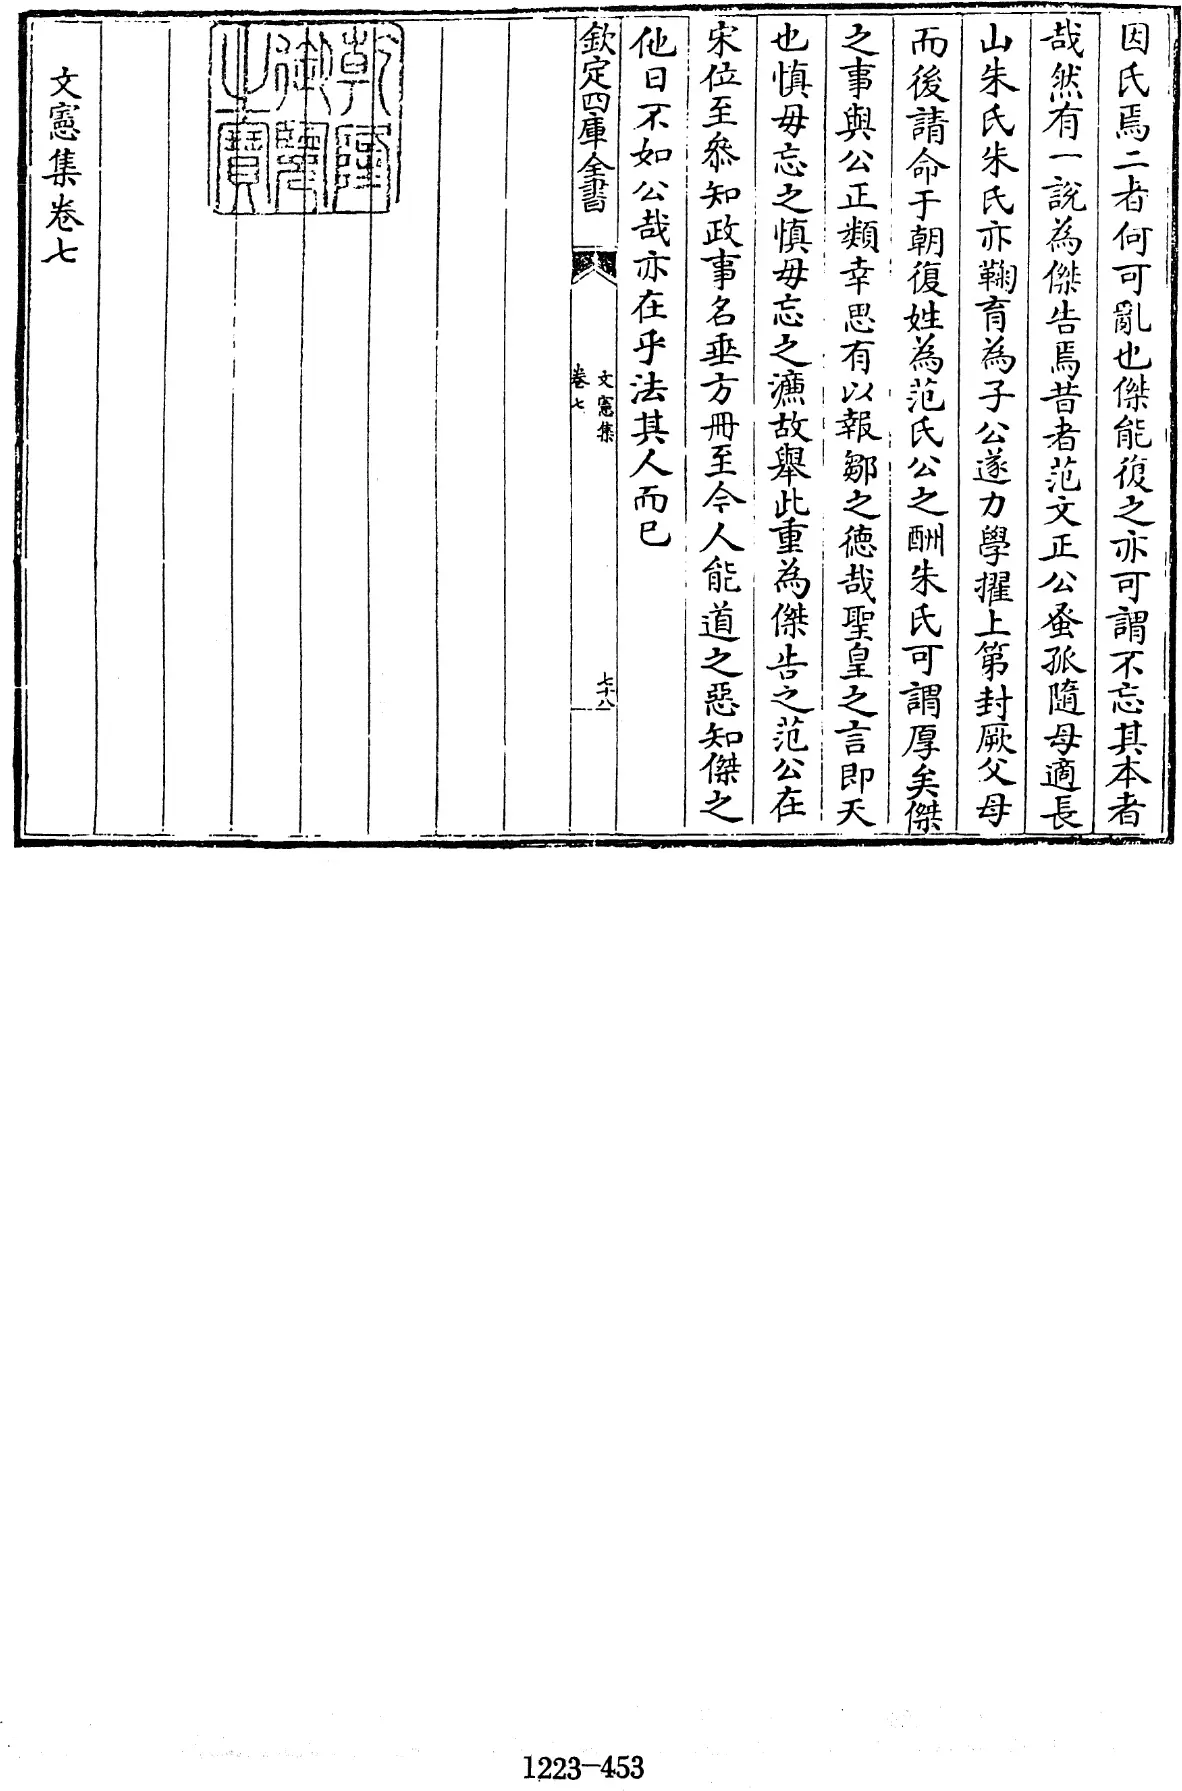 因氏焉二者何可亂也傑能復之亦可謂不忘其本者
哉然有一說為傑告焉昔者范文正公蚤孤隨母適長
山朱氏朱氏亦鞠育為子公遂力學擢上第封厥父母
而後請命于朝復姓為范氏公之酬朱氏可謂厚矣傑
之事與公正類幸思有以報鄒之德哉聖皇之言即天
也慎毋忘之慎毋忘之濂故舉此重為傑告之范公在
宋位至叅知政事名垂方冊至今人能道之惡知傑之
他日不如公哉亦在乎法其人而已
欽定四庫全書
文憲集
卷七
七十八
乾隆御覽之寶
文憲集卷七
1223-453